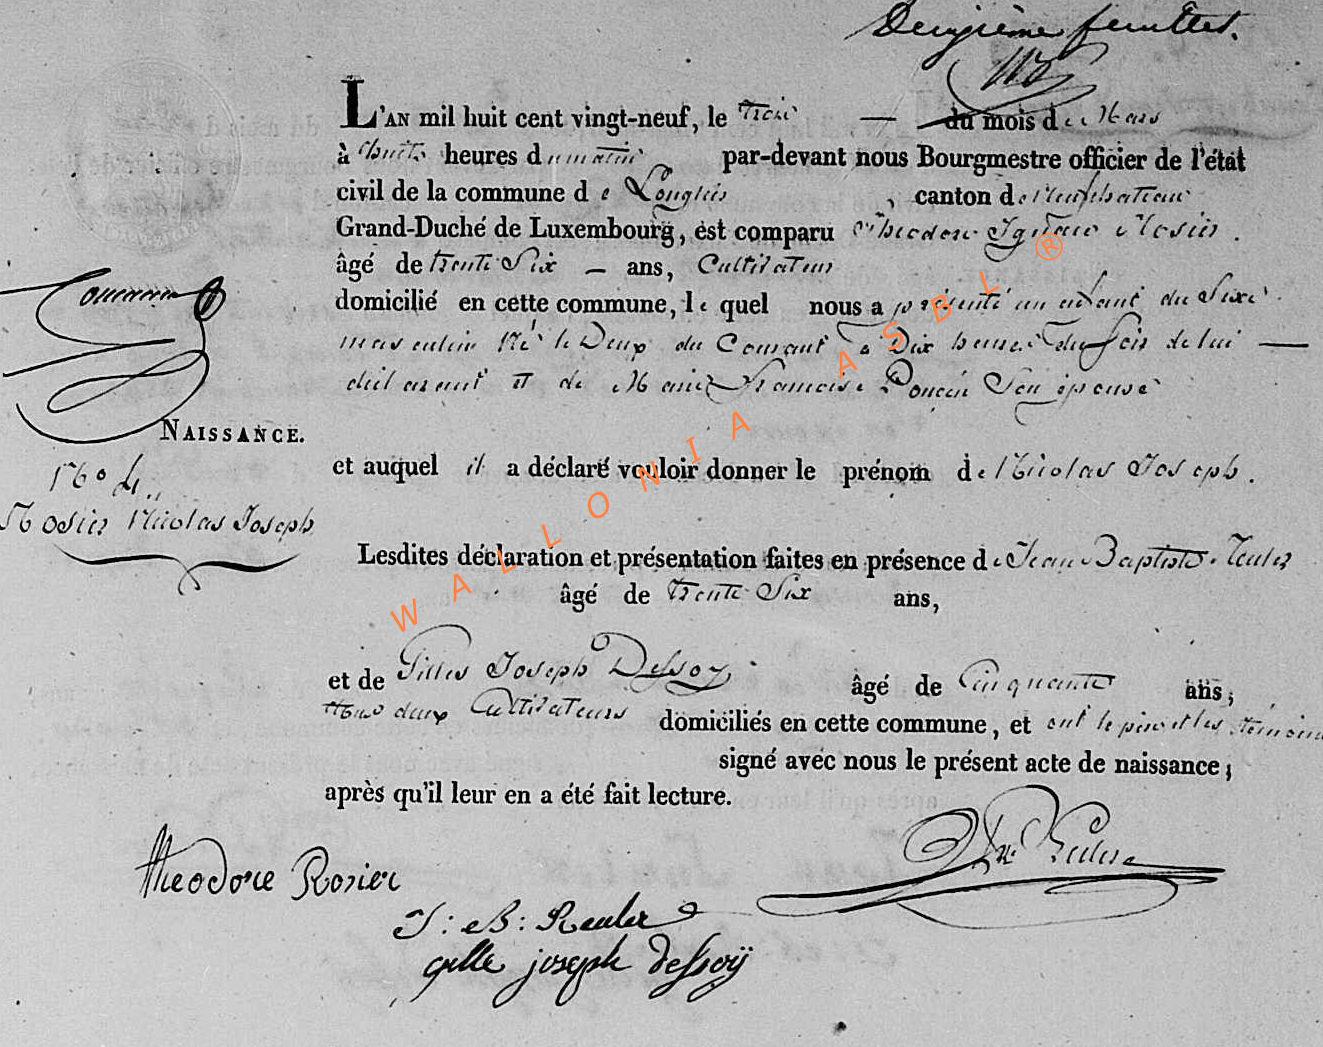 Deuxième feuillet.
L'AN mil huit cent vingt-neuf, le trois — du mois de Mars
à huit heures du matin par-devant nous Bourgmestre officier de l'état
civil de la commune de Longlier, canton de Neufchateau
Grand-Duché de Luxembourg, est comparu Théodore Ignace Rosier.
âgé de trente Six — ans, Cultivateur
domicilié en cette commune, lequel nous a présenté un enfant du Sexe
masculin Né le Deux du Courant à Dix heures du Soir de lui —
déclarant et de Marie Françoise Poncin Son épouse
NAISSANCE.
et auquel il a déclaré vouloir donner le prénom de Nicolas Joseph.
N°
Rosier Nicolas Joseph
Lesdites déclaration et présentation faites en présence de Jean Baptiste Reuler
âgé de trente Six ans,
et de Gilles Joseph Dessoy âgé de Cinquante ans;
tous deux Cultivateurs domiciliés en cette commune, et ont le père et les témoins
signé avec nous le présent acte de naissance;
après qu'il leur en a été fait lecture.
theodore Rosier
J: B: Reuler
gille joseph dessoÿ
WALLONIA ASBL ®